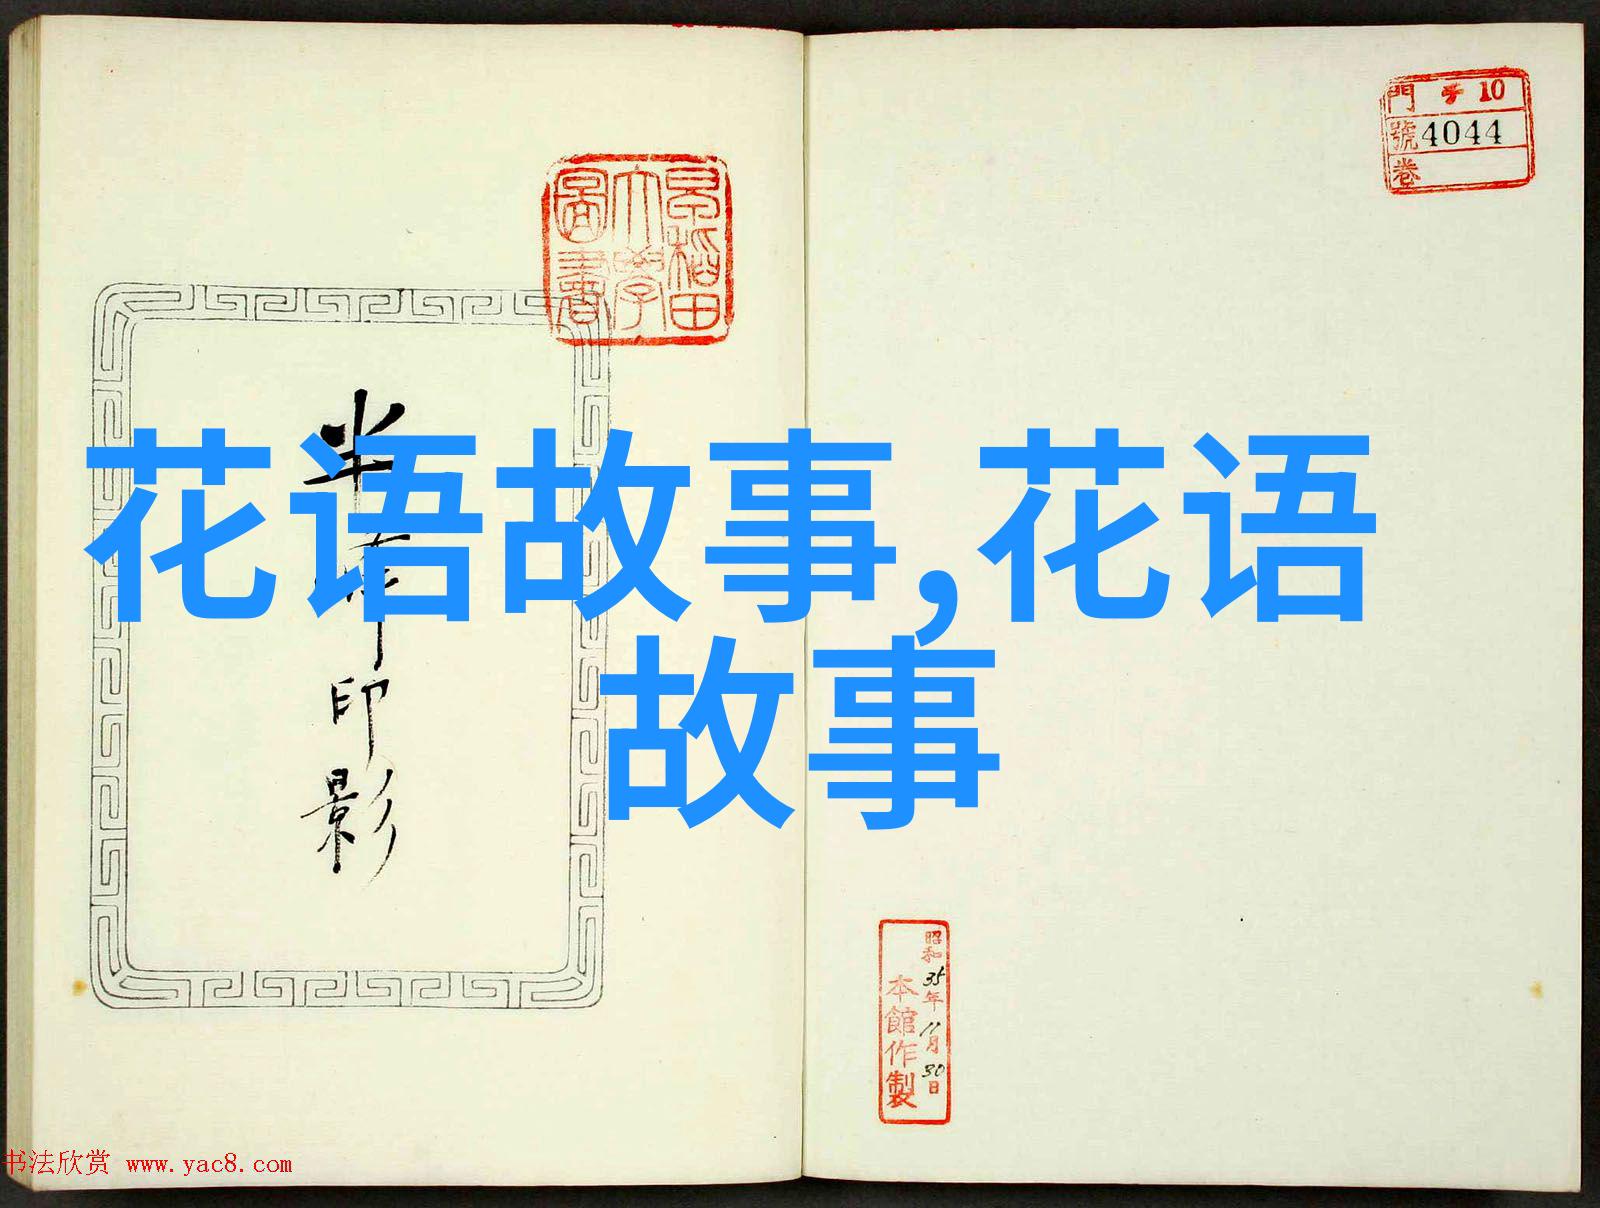 門 チ 10
號 4044
卷
早稲田
大學
圖書
半
印
影
花语故事,花语
故事
昭和35年11月30日
本館作製
书法欣赏 www.yac8.com